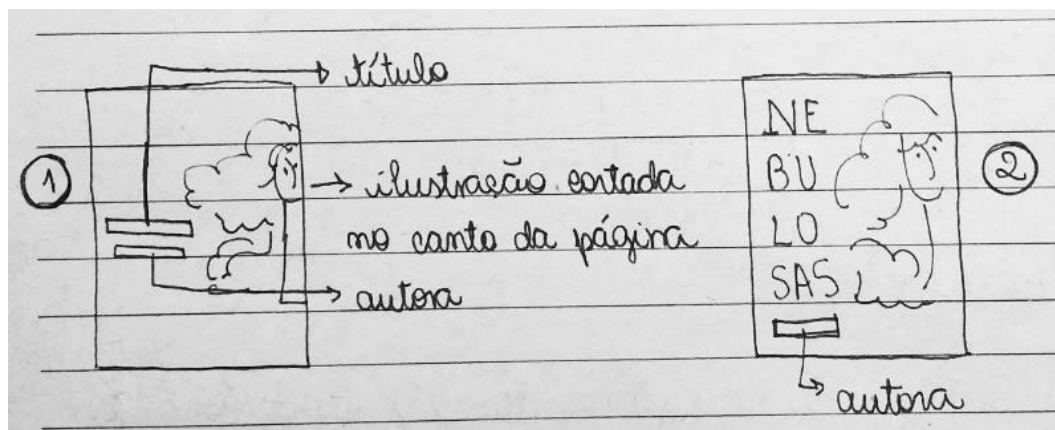 título
1
ilustração cortada
no canto da página
autora
NE
BU
LO
SAS
2
autora